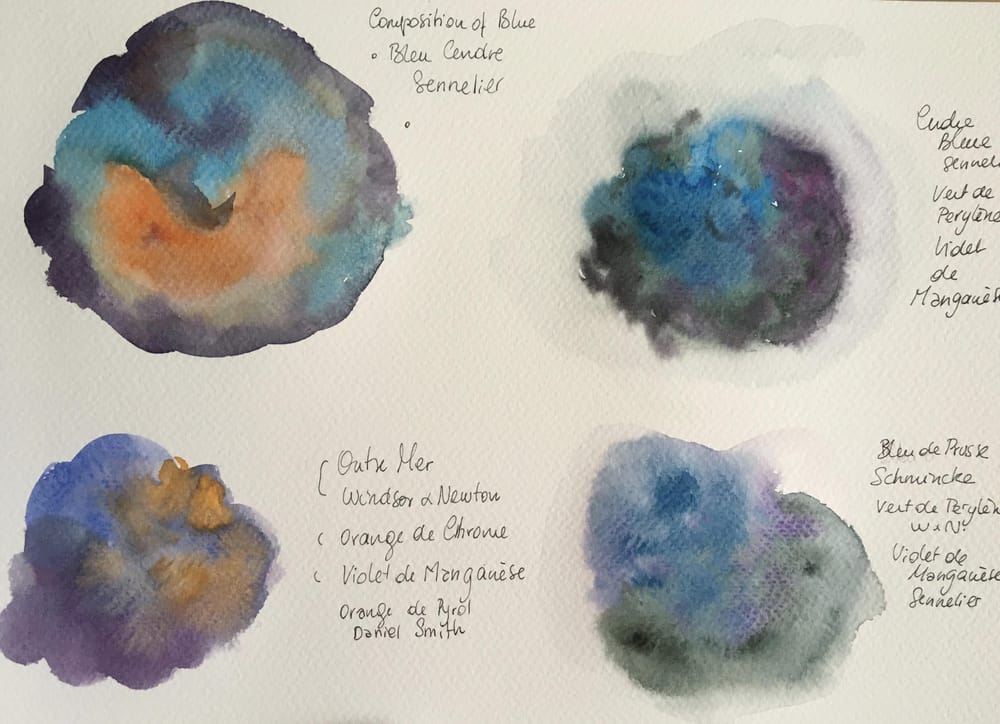 Composition of Blue
• Bleu Cendre
Sennelier
•
Cendre
Bleue
Sennel
Vert de
Perylène
Violet
de
Manganès
Outre Mer
Windsor & Newton
Orange de Chrome
Violet de Manganèse
Orange de Pyrol
Daniel Smith
Bleu de Prusse
Schmincke
Vert de Perylèn
W & N
Violet de
Manganèse
Sennelier